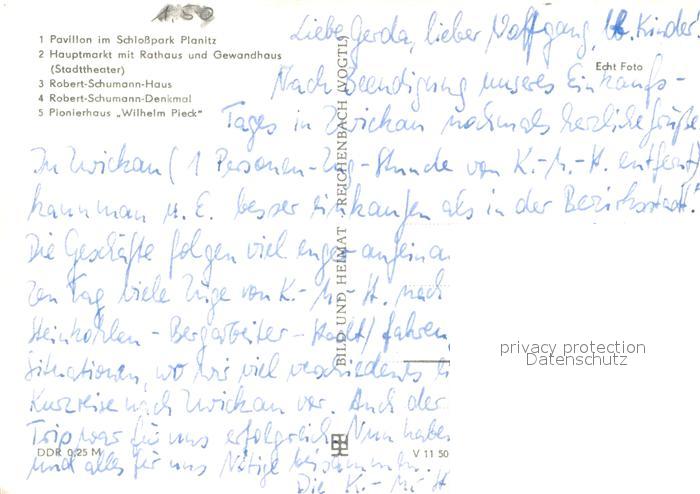 1.50
1 Pavillon im Schloßpark Planitz
2 Hauptmarkt mit Rathaus und Gewandhaus
(Stadttheater)
3 Robert-Schumann-Haus
4 Robert-Schumann-Denkmal
5 Pionierhaus „Wilhelm Pieck"
Echt Foto
Liebe Gerda, lieber Wolfgang, lb. Kinder!
Nach Beendigung unseres Einkaufs-
Tages in Zwickau nochmals herzliche Grüße
In Zwickau (1 Personen-Zug-Stunde von K.-M.-St. entfernt)
kann man u. E. besser einkaufen als in der Bezirksstadt.
Die Geschäfte folgen viel enger aufeinan
Tag viele Züge von K.-M.-St. nach
Steinkohlen-Bergarbeiter-Stadt) fahren
Situationen, wo wir viel verschiedenes
Kurzreise nach Zwickau vor. Auch der
Trip war für uns erfolgreich. Nun haben
und alles für uns Nötige beisammen.
Die K.-M.-St
BILD UND HEIMAT REICHENBACH (VOGTL)
DDR 0,25 M
V 11 50
privacy protection
Datenschutz